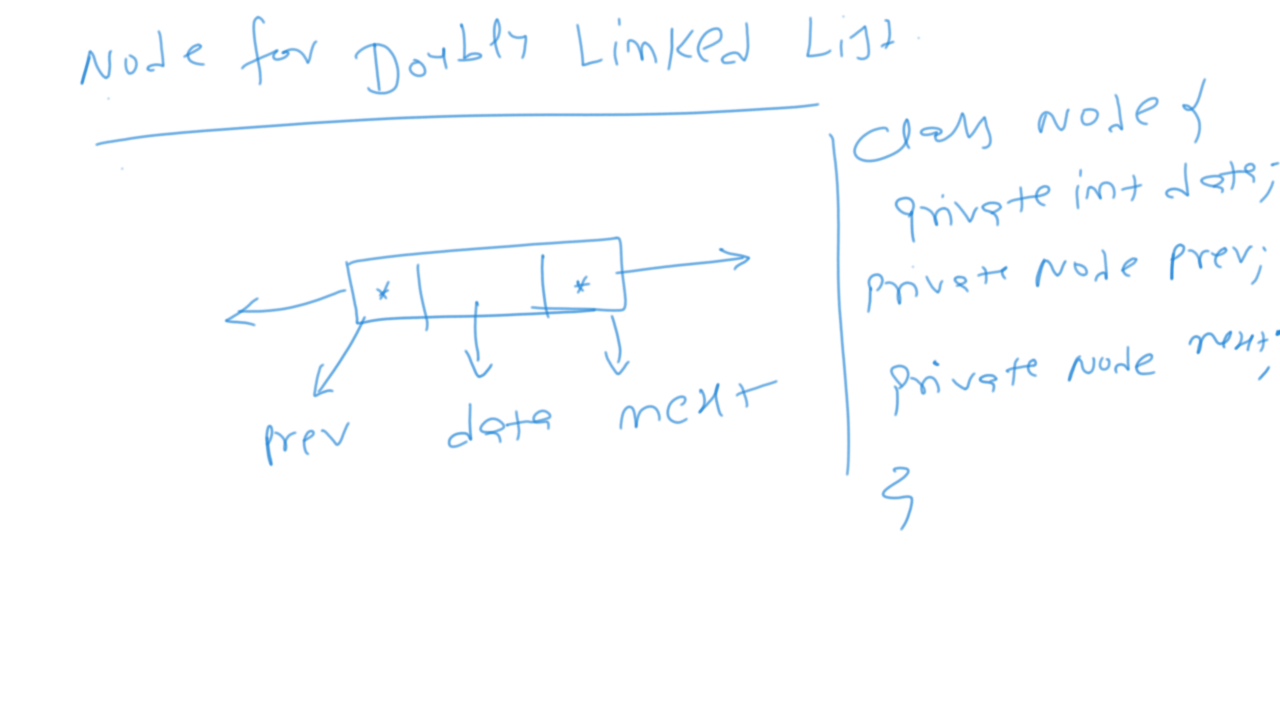 Node for Doubly Linked List
* *
prev data next
class Node {
private int data;
private Node prev;
private Node next;
}